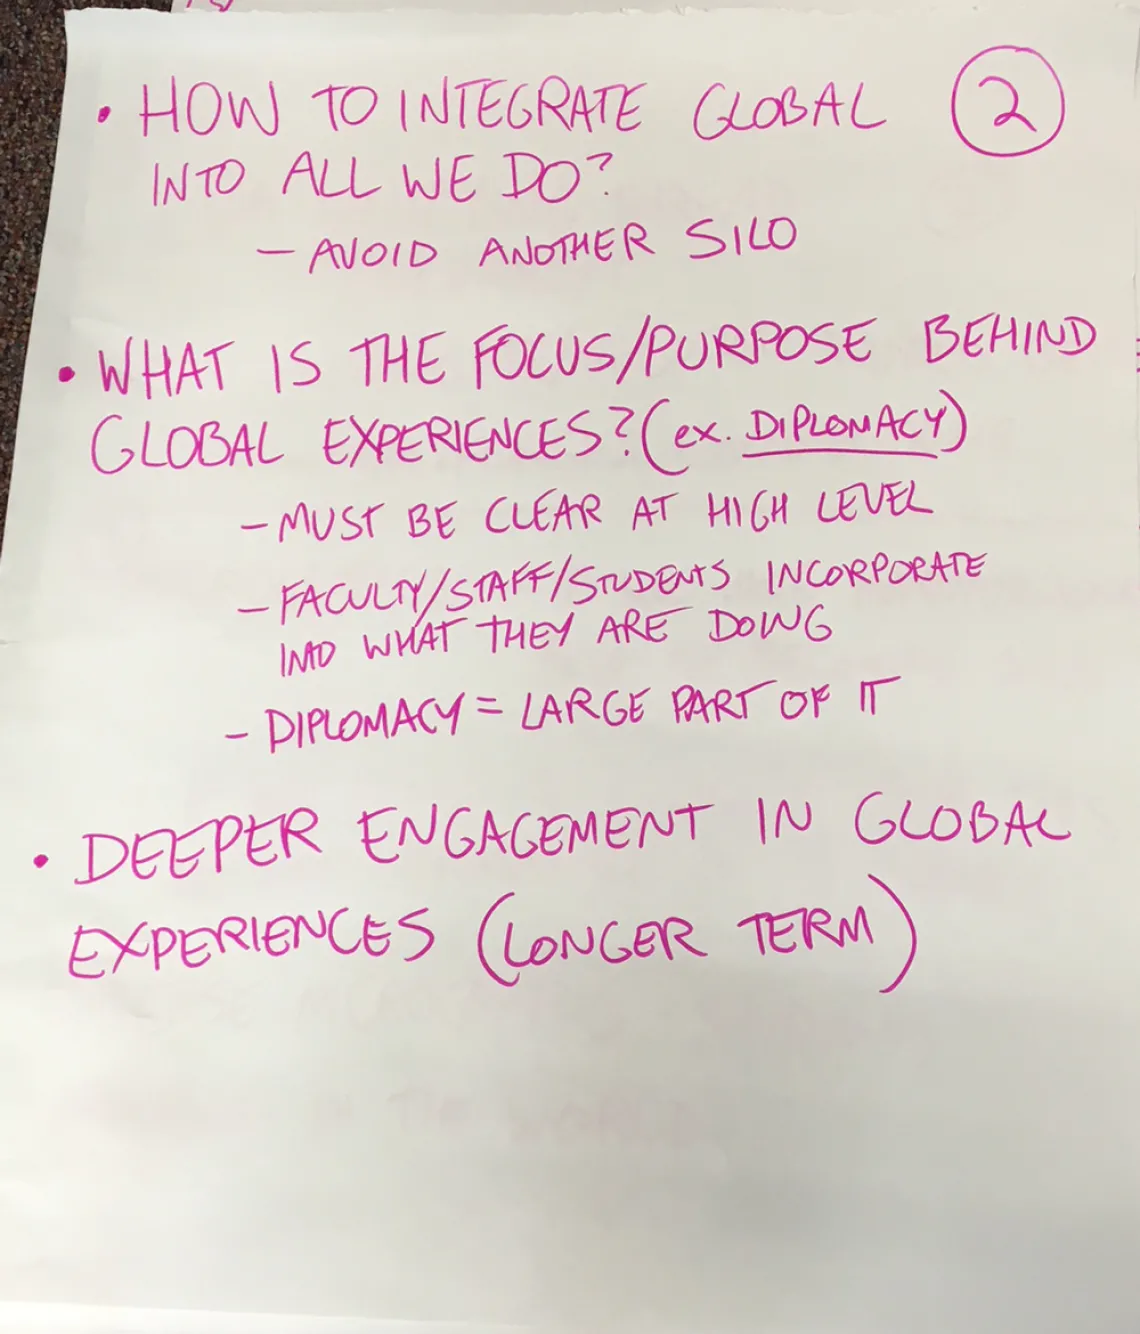 • HOW TO INTEGRATE GLOBAL ②
INTO ALL WE DO?
– AVOID ANOTHER SILO
• WHAT IS THE FOCUS/PURPOSE BEHIND
GLOBAL EXPERIENCES? (ex. DIPLOMACY)
– MUST BE CLEAR AT HIGH LEVEL
– FACULTY/STAFF/STUDENTS INCORPORATE
INTO WHAT THEY ARE DOING
– DIPLOMACY = LARGE PART OF IT
• DEEPER ENGAGEMENT IN GLOBAL
EXPERIENCES (LONGER TERM)